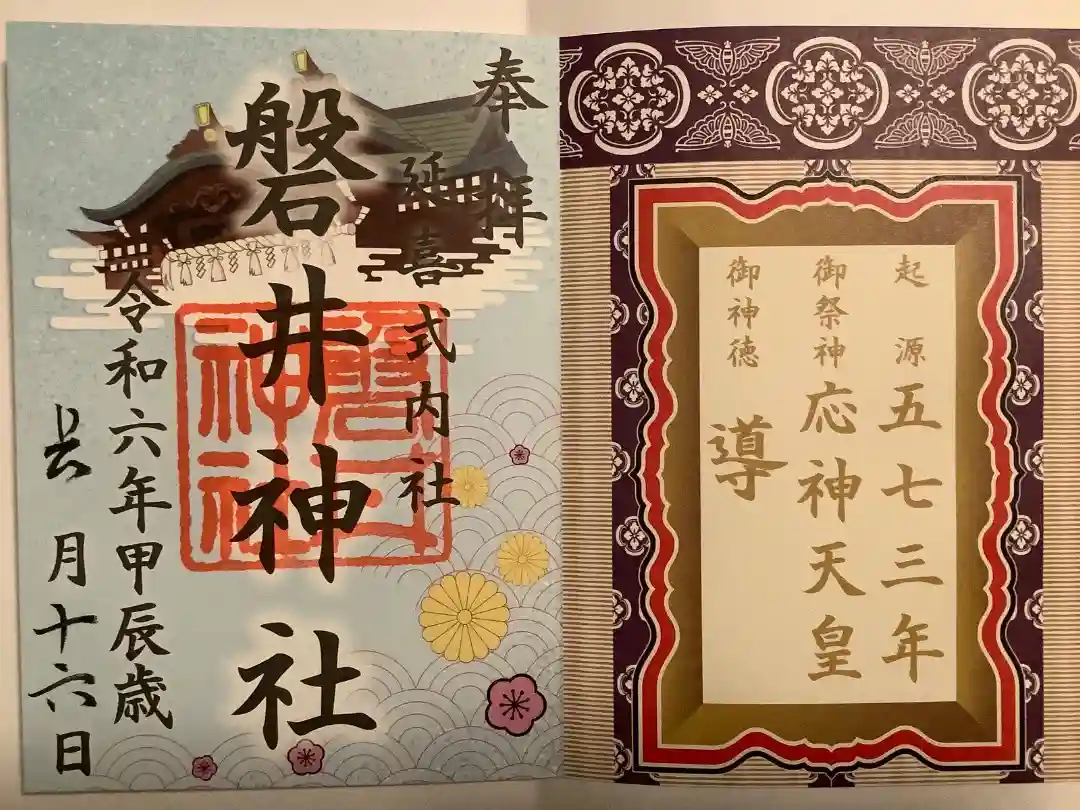 起源 五七三年
御祭神 応神天皇
御神徳 導
奉拝
延喜式内社
磐井神社
磐井
神社
令和六年甲辰歳
月十六日